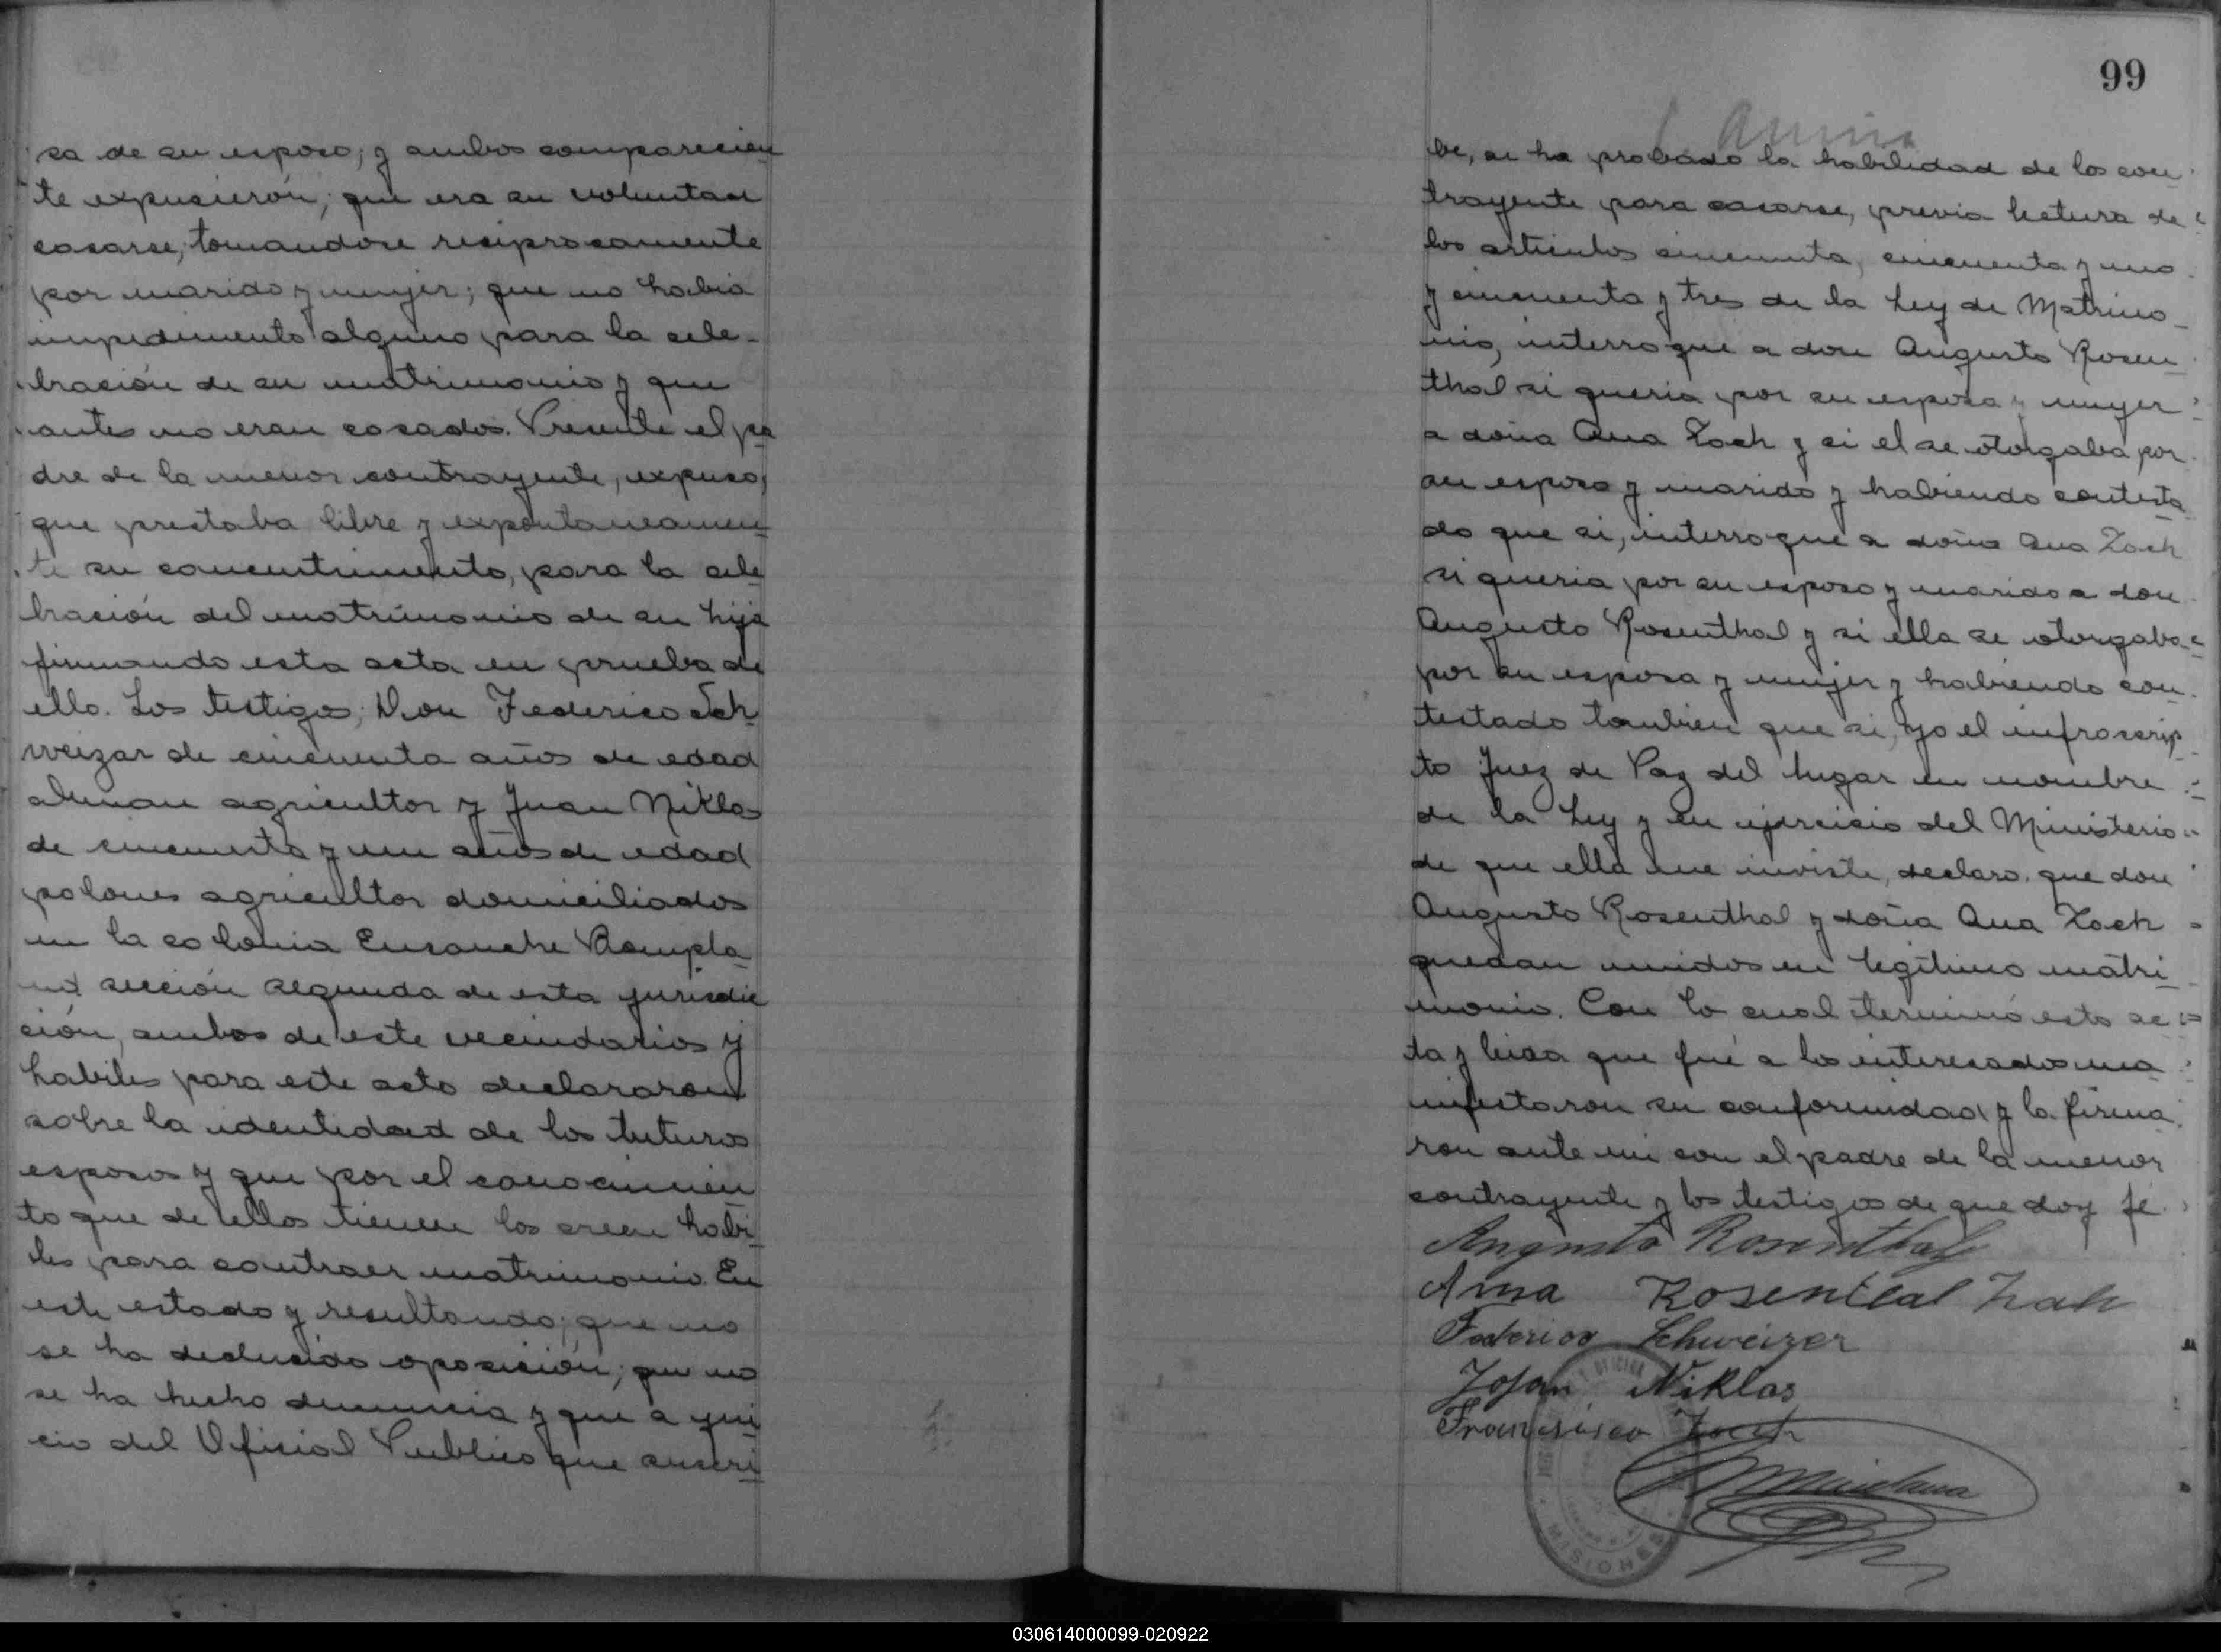 sa de su esposo; y ambos comparecien
te expusierón; que era su voluntad
casarse, tomandose resiprocamente
por marido y mujer; que no habia
impedimento alguno para la cele-
bración de su matrimonio y que
antes no eran casados. Presente el pa
dre de la menor contrayente, expuso,
que prestaba libre y expontaneamen
te su concentimiento, para la cele
bración del matrimonio de su hija
firmando esta acta en prueba de
ello. Los testigos; Don Federico Sch
weizar de cincuenta años de edad
aleman agricultor y Juan Niklas
de cincuenta y un años de edad
polones agricultor domiciliados
en la colonia Ensanche Bompla
nd sección segunda de esta jurisdic
ción, ambos de este vecindarios y
habiles para este acto declararon
sobre la identidad de los tuturos
esposos y que por el conocimien
to que de ellos tienen los creen habi
les para contraer matrimonio. En
este estado y resultando; que no
se ha deducido oposición; que no
se ha hecho denuncia y que a yui
cio del Oficial Publico que suscri
99
Anna
be, se ha probado la habilidad de los con
trayente para casarse, previa lectura de
los articulos cincuenta, cincuenta y uno
y cincuenta y tres de la Ley de Matrimo-
nio, interroque a don Augusto Rosen
thal si queria por su esposa y mujer
a doña Ana Zoch y si el se otorgaba por
su esposo y marido y habiendo contesta
do que si, interroque a doña Ana Zoch
si queria por su esposo y marido a don
Augusto Rosenthal y si ella se otorgaba
por su esposa y mujer y habiendo con
testado tambien que si, yo el infrascrip
to Juez de Paz del lugar en nombre
de la Ley y en ejercicio del Ministerio
de que ella me inviste, declaro que don
Augusto Rosenthal y doña Ana Zoch
quedan unidos en legitimo matri
monio. Con lo cual terminó esta ac
ta y leida que fué a los interesados ma
nifestaron su conformidad y la firma
ron ante mi con el padre de la menor
contrayente y los testigos de que doy fé.
Augusto Rosenthal
Anna Rosenthal Zoch
Federico Schweizer
Johan Niklas
Francisco Zoch
MISIONES
030614000099-020922